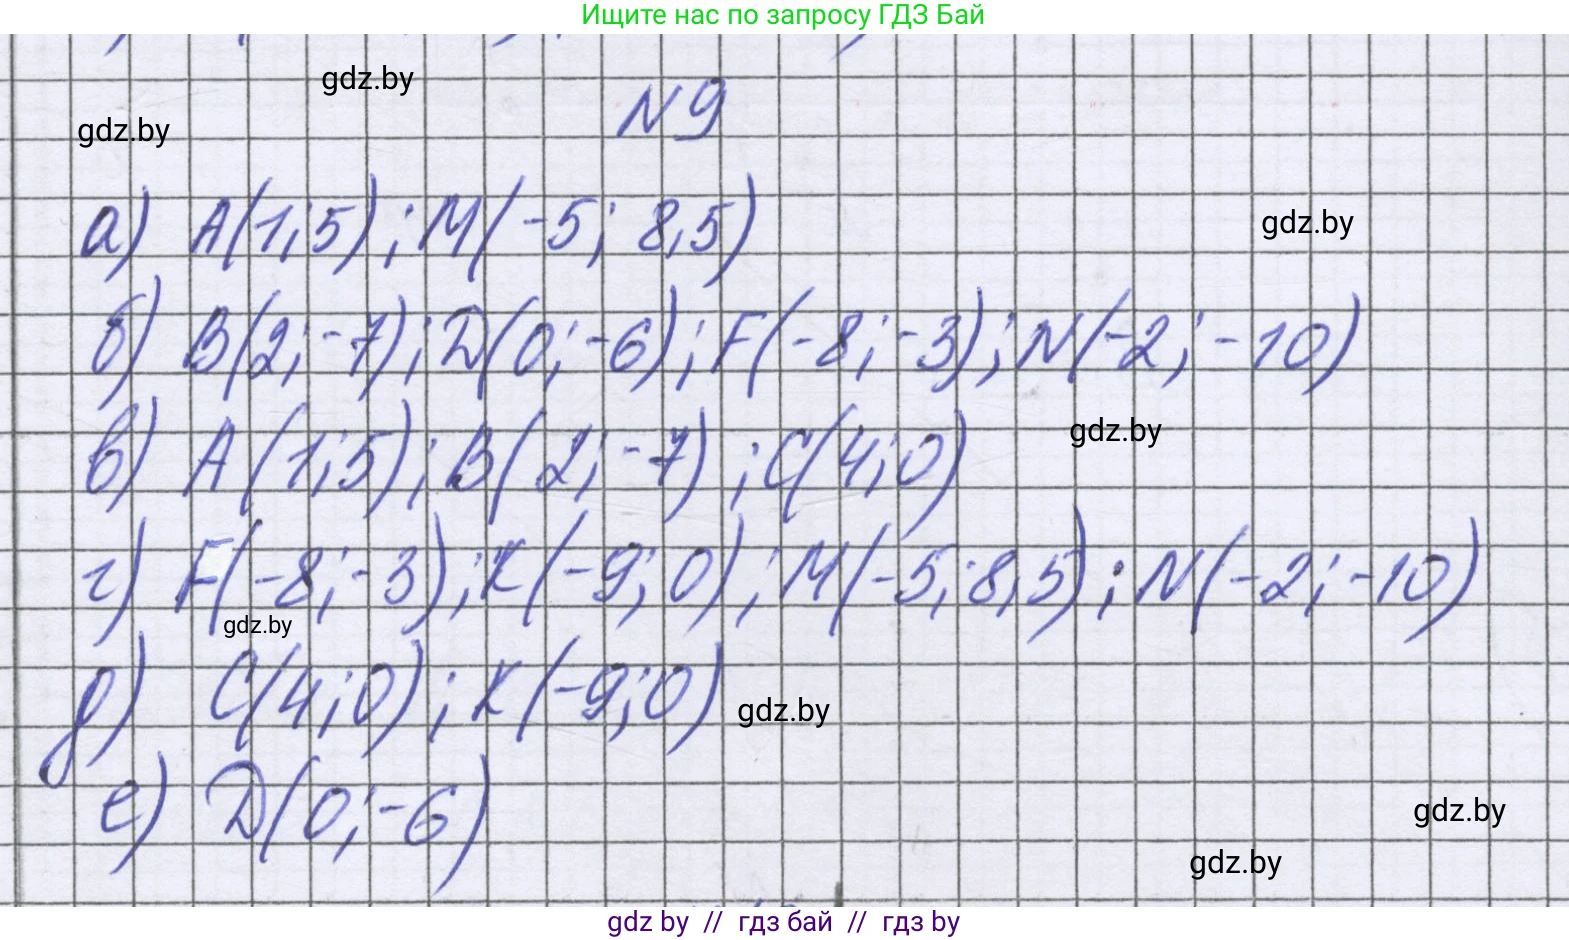 Ищите нас по запросу ГДЗ Бай
gdz.by
N9
gdz.by
а) A(1;5); M(-5; 8,5)
gdz.by
б) B(2;-7); D(0;-6); F(-8;-3); N(-2; -10)
gdz.by
в) A (1;5); B(2;-7) ; C(4;0)
г) F(-8;-3); K(-9;0); M(-5;8,5); N(-2;-10)
gdz.by
д) C(4;0); K(-9;0)
gdz.by
е) D(0;-6)
gdz.by
gdz.by
gdz by // гдз бай // гдз by